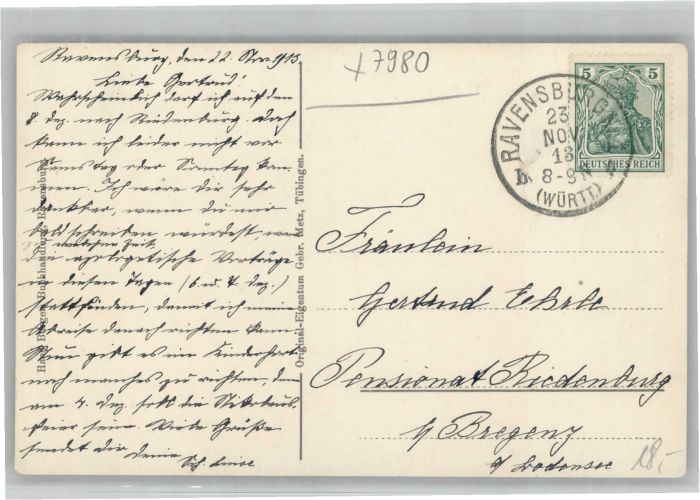 Ravensburg, den 22. Nov. 1913.
Liebe Gertrud!
Wahrscheinlich darf ich auf den
8. Dez. nach Riedenburg. Doch
kann ich leider nicht vor
Samstag oder Sonntag kom-
men. Ich wäre dir sehr
dankbar, wenn du mir
bald schreiben würdest, wann
welcher Zeit
die apologetische Vorträge
in diesen Tagen (6. u. 7. Dez.)
stattfinden, damit ich meine
Abreise danach richten kann.
Nun gibt es im Kinderhort
noch manches zu richten, denn
am 4. Dez. soll die Nikolaus-
feier sein. Viele Grüße
sendet dir deine
Sch. Luise
+7980
5 5
DEUTSCHES REICH
RAVENSBURG
23
NOV
13
8-9 N
(WÜRTT.)
Fräulein
Gertrud Ehrle
Pensionat Riedenburg
b/ Bregenz
a/ Bodensee
18,-
Buchhandlung, Ravensburg.
Original-Eigentum Gebr. Metz, Tübingen.